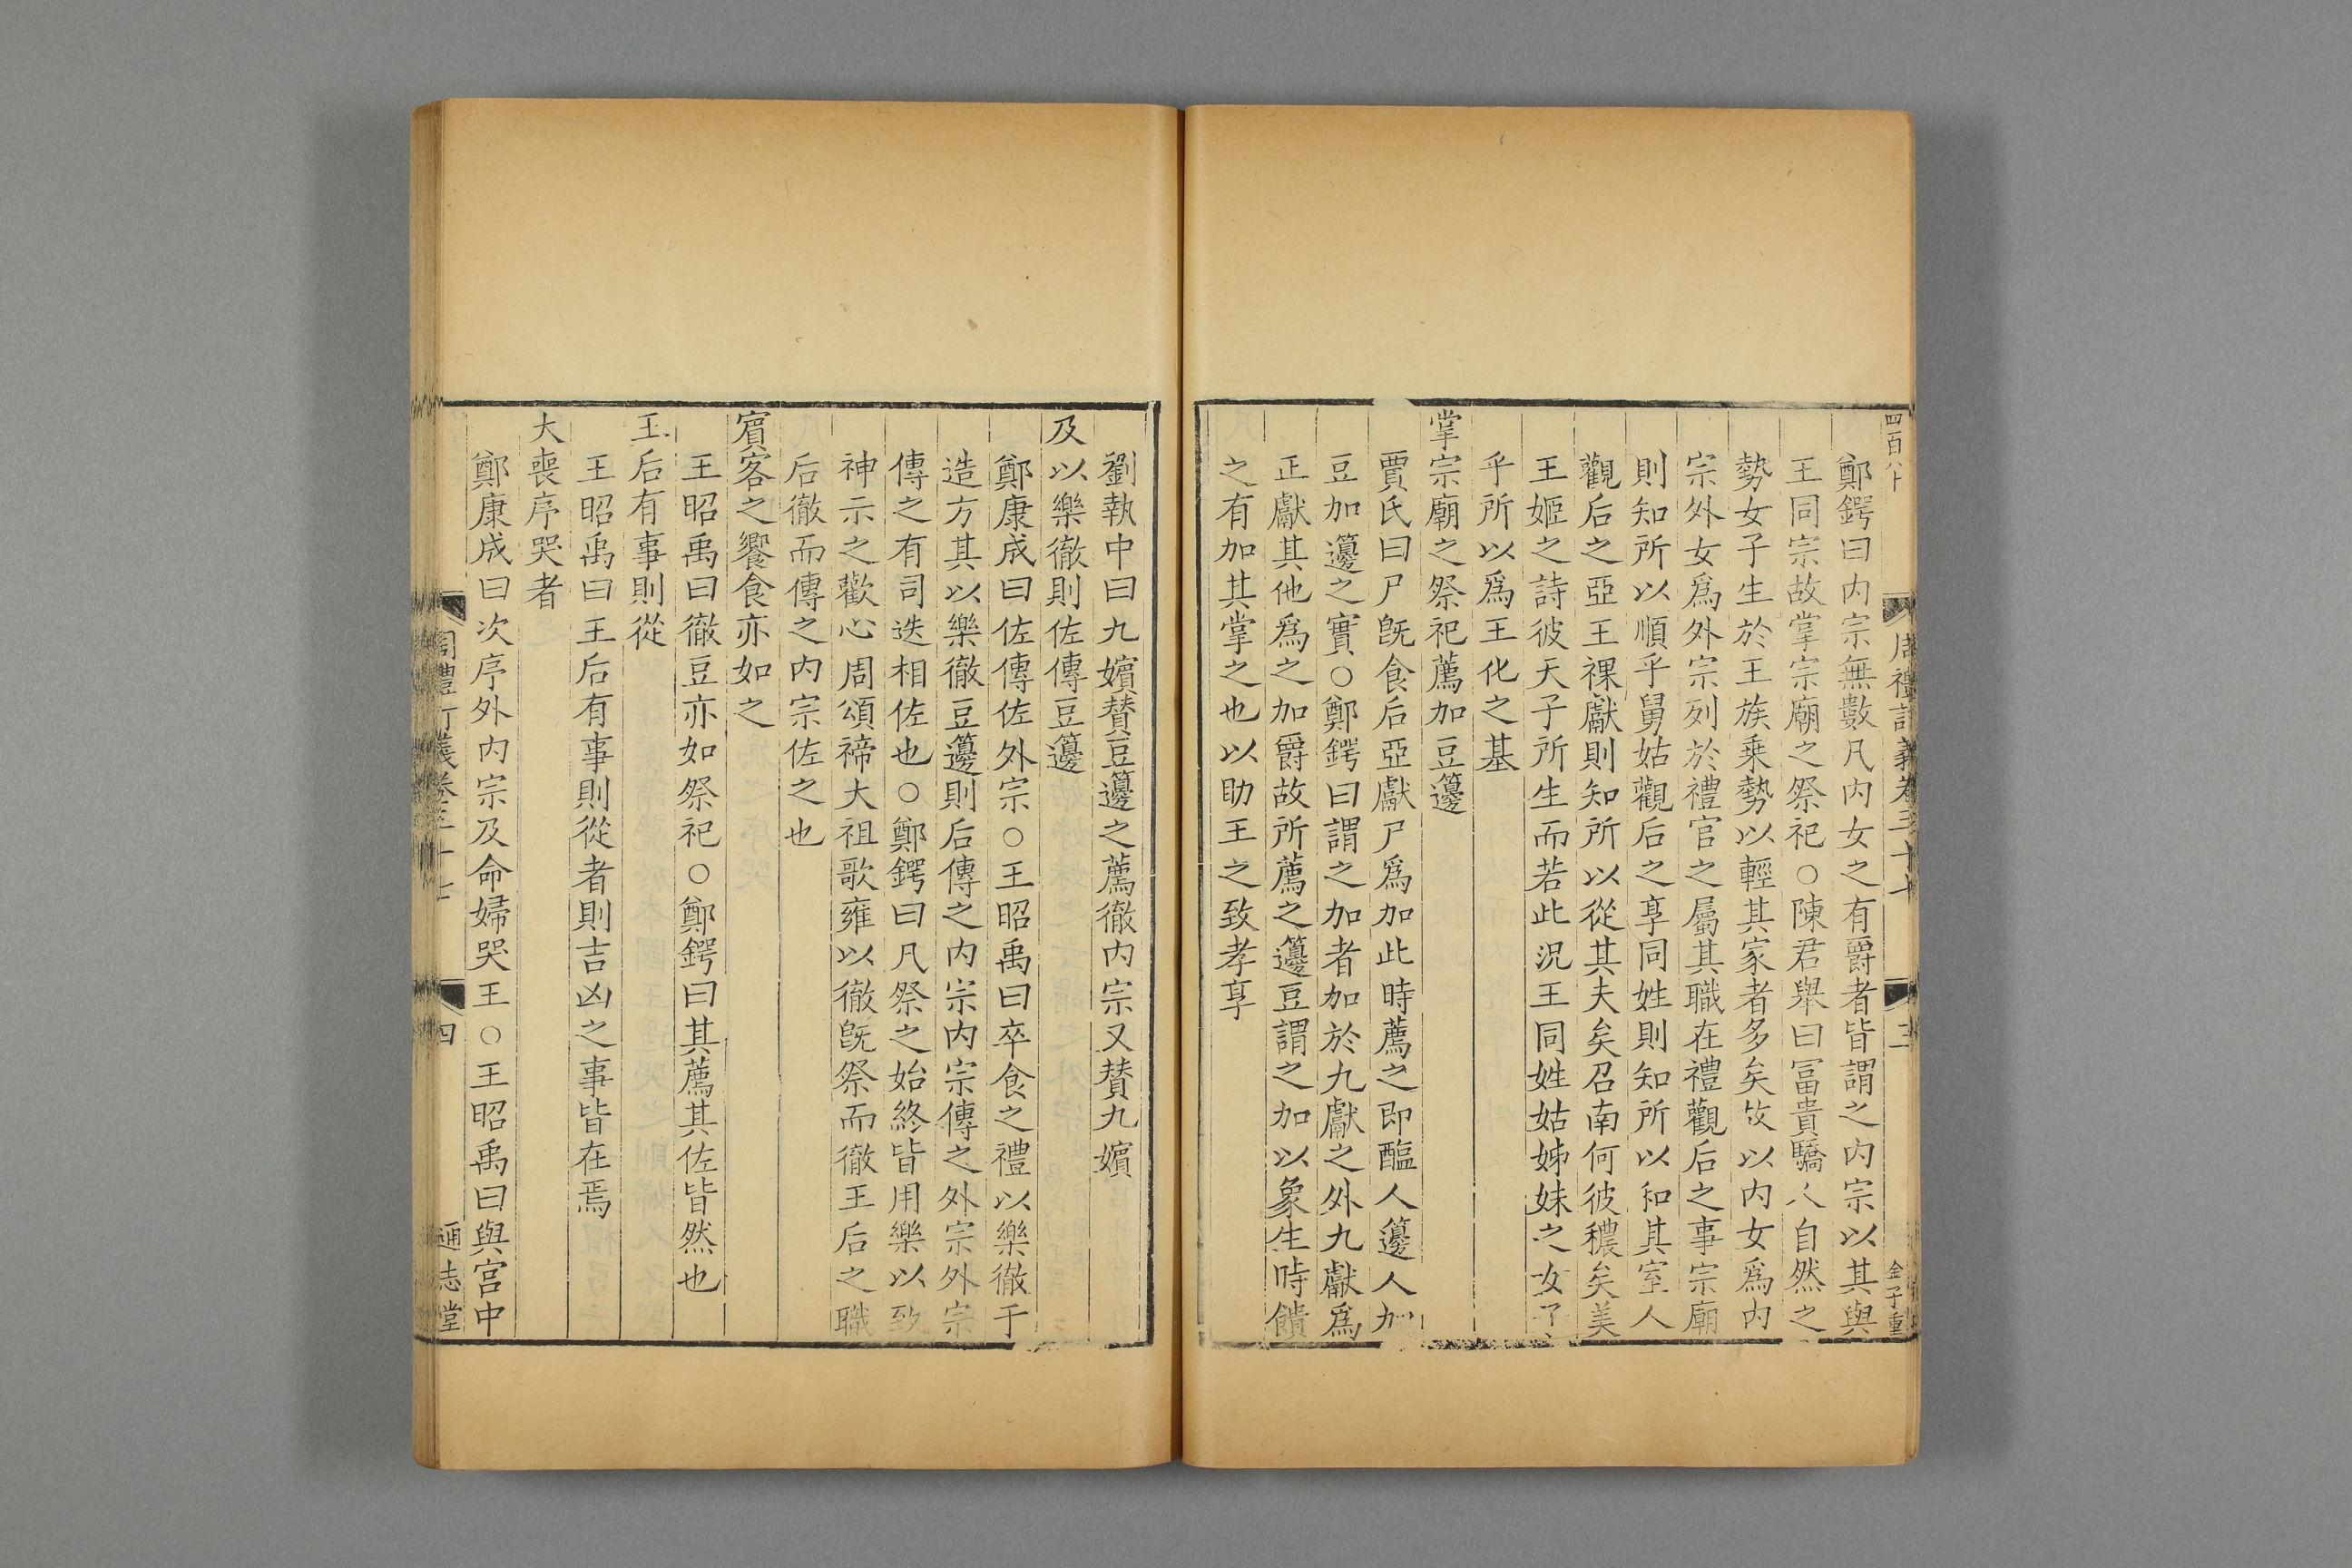 四百八十
周禮訂義卷三十七
三
金子重
鄭鍔曰内宗無數凡内女之有爵者皆謂之内宗以其與
王同宗故掌宗廟之祭祀○陳君舉曰冨貴驕人自然之
勢女子生於王族乘勢以輕其家者多矣故以内女爲内
宗外女爲外宗列於禮官之屬其職在禮觀后之事宗廟
則知所以順乎舅姑觀后之享同姓則知所以和其室人
觀后之亞王祼獻則知所以從其夫矣召南何彼穠矣美
王姬之詩彼天子所生而若此況王同姓姑姊妹之女子
乎所以爲王化之基
掌宗廟之祭祀薦加豆籩
賈氏曰尸旣食后亞獻尸爲加此時薦之即醢人籩人加
豆加籩之實○鄭鍔曰謂之加者加於九獻之外九獻爲
正獻其他爲之加爵故所薦之籩豆謂之加以象生時饋
之有加其掌之也以助王之致孝享
劉執中曰九嬪賛豆籩之薦徹内宗又賛九嬪
及以樂徹則佐傳豆籩
鄭康成曰佐傳佐外宗○王昭禹曰卒食之禮以樂徹于
造方其以樂徹豆籩則后傳之内宗内宗傳之外宗外宗
傳之有司迭相佐也○鄭鍔曰凡祭之始終皆用樂以致
神示之歡心周頌禘大祖歌雍以徹旣祭而徹王后之職
后徹而傳之内宗佐之也
賔客之饗食亦如之
王昭禹曰徹豆亦如祭祀○鄭鍔曰其薦其佐皆然也
王后有事則從
王昭禹曰王后有事則從者則吉凶之事皆在焉
大喪序哭者
鄭康成曰次序外内宗及命婦哭王○王昭禹曰與宫中
周禮訂義卷三十七
四
通志堂